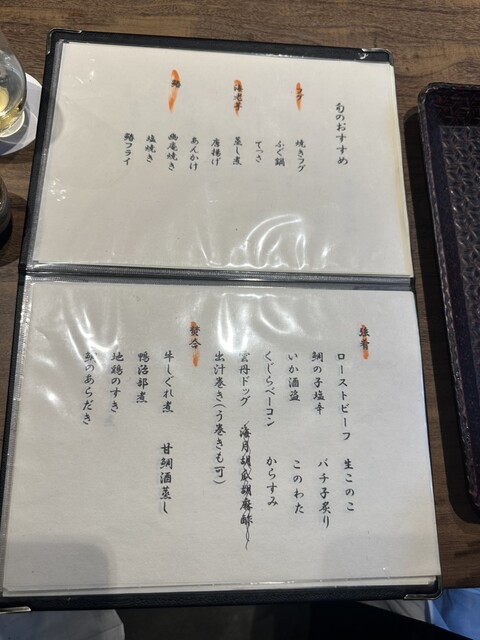 旬のおすすめ
フグ
焼きフグ
ふぐ鍋
てっさ
海老芋
蒸し煮
唐揚げ
あんかけ
幽庵焼き
塩焼き
鰤フライ
強肴
ローストビーフ 生このこ
鯛の子塩辛 バチ子炙り
いか酒盗 このわた
くじらベーコン からすみ
雲丹ドッグ 海月胡瓜胡麻酢
出汁巻き(う巻きも可)
炊合
牛しぐれ煮 甘鯛酒蒸し
鴨治部煮
地鶏のすき
のあらだき